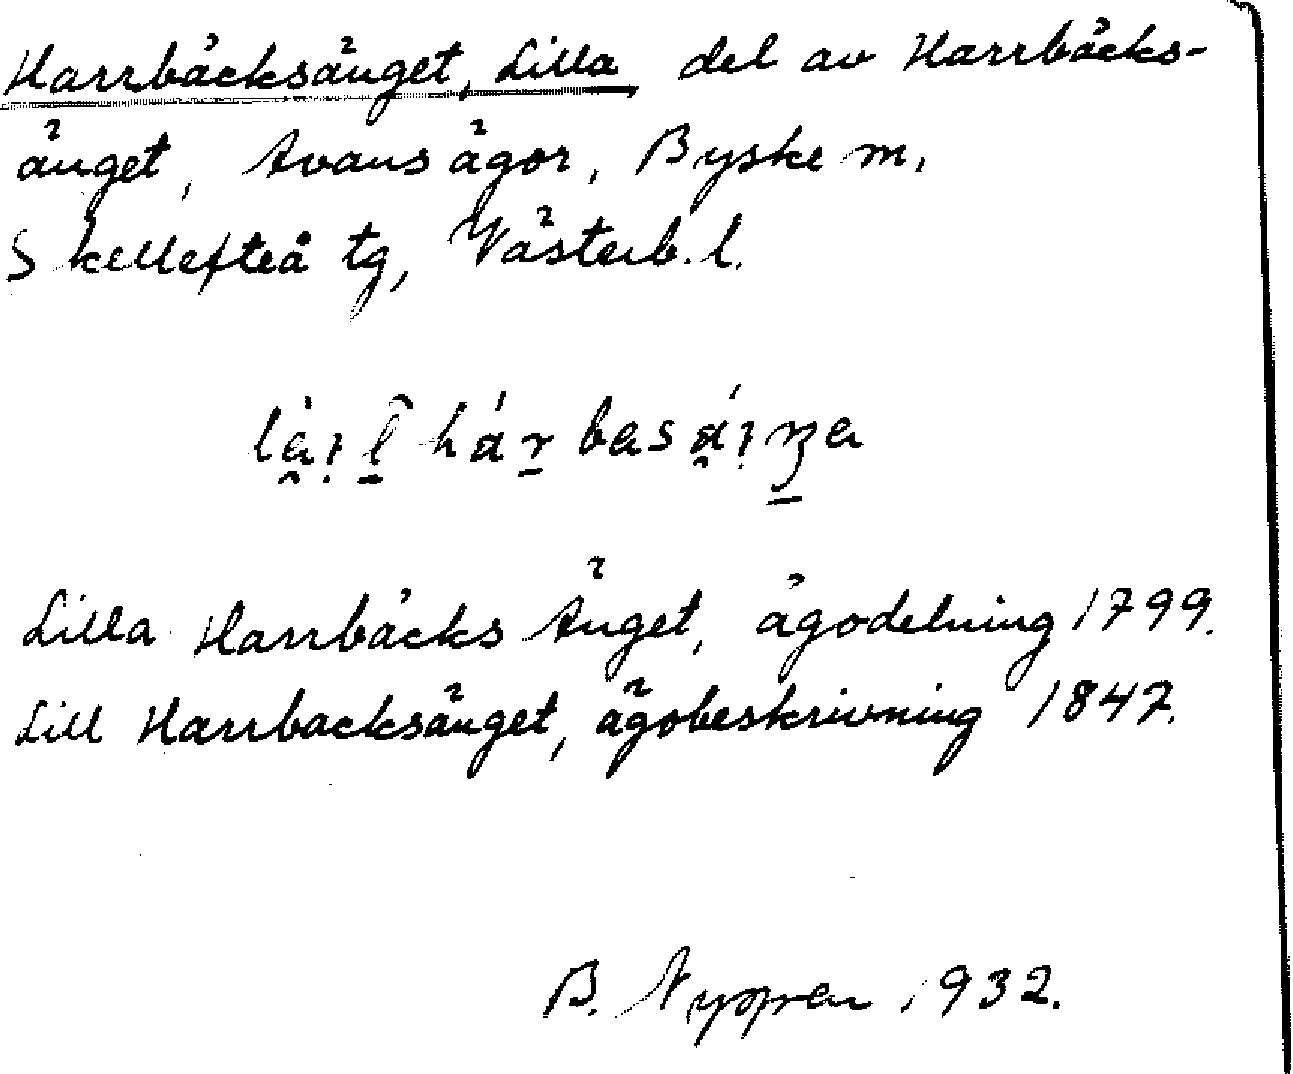 Harrbäcksänget, Lilla, del av Harrbäcks-
änget, Avans ägor, Byske sn,
Skellefteå tg, Västerb. l.
Lilla Harrbäcks Änget, ägodelning 1799.
Lill Harrbäcksänget, ägobeskrivning 1847.
B. 1932.